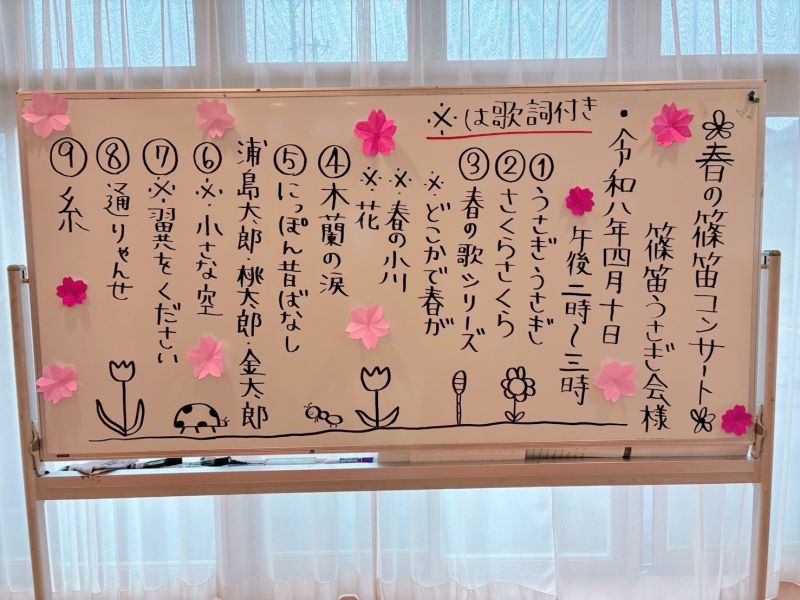 春の篠笛コンサート
篠笛うさぎ会様
・令和八年四月十日
午後二時〜三時
※は歌詞付き
①うさぎうさぎ
②さくらさくら
③春の歌シリーズ
※どこかで春が
※春の小川
※花
④木蘭の涙
⑤にっぽん昔ばなし
浦島太郎・桃太郎・金太郎
⑥※小さな空
⑦※翼をください
⑧通りゃんせ
⑨糸